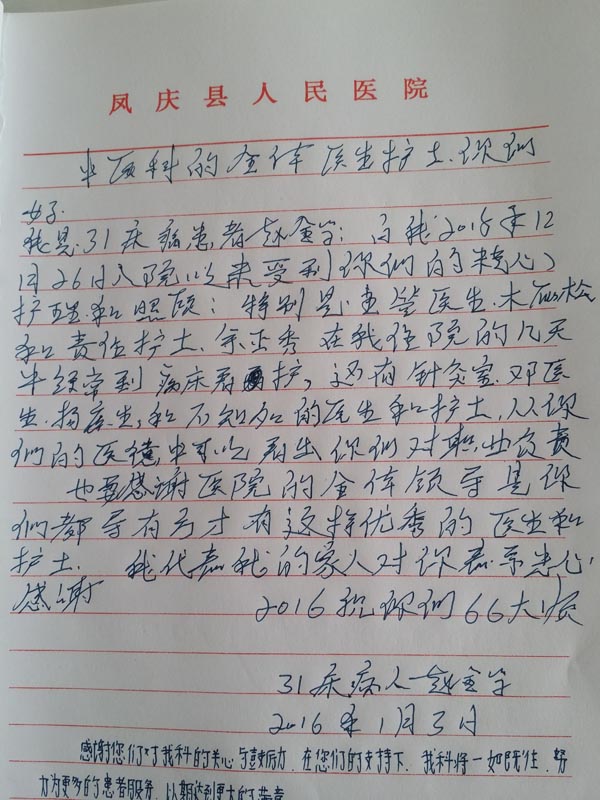 凤庆县人民医院
中医科的全体医生护士.你们
好.
我是.31床病患者赵金学：自我2015年12
月26日入院以来受到你们的精心
护理.和照顾：特别是.主管医生.木
和责任护士.余正秀在我住院的几天
中经常到病床看护，还有针灸室.邓医
生.杨医生，和不知名的医生和护士，从你
们的医德中可以看出你们对职业负责
也要感谢医院的全体领导是你
们都导有方才有这样优秀的医生和
护士. 我代表我的家人对你表示忠心
感谢 2016祝你们66大顺
31床病人—赵金学
2016年1月3日
感谢您们对于我科的关心与鼓励力，在您们的支持下，我科将一如既往，努
力为更多的患者服务，以期达到更大的荣